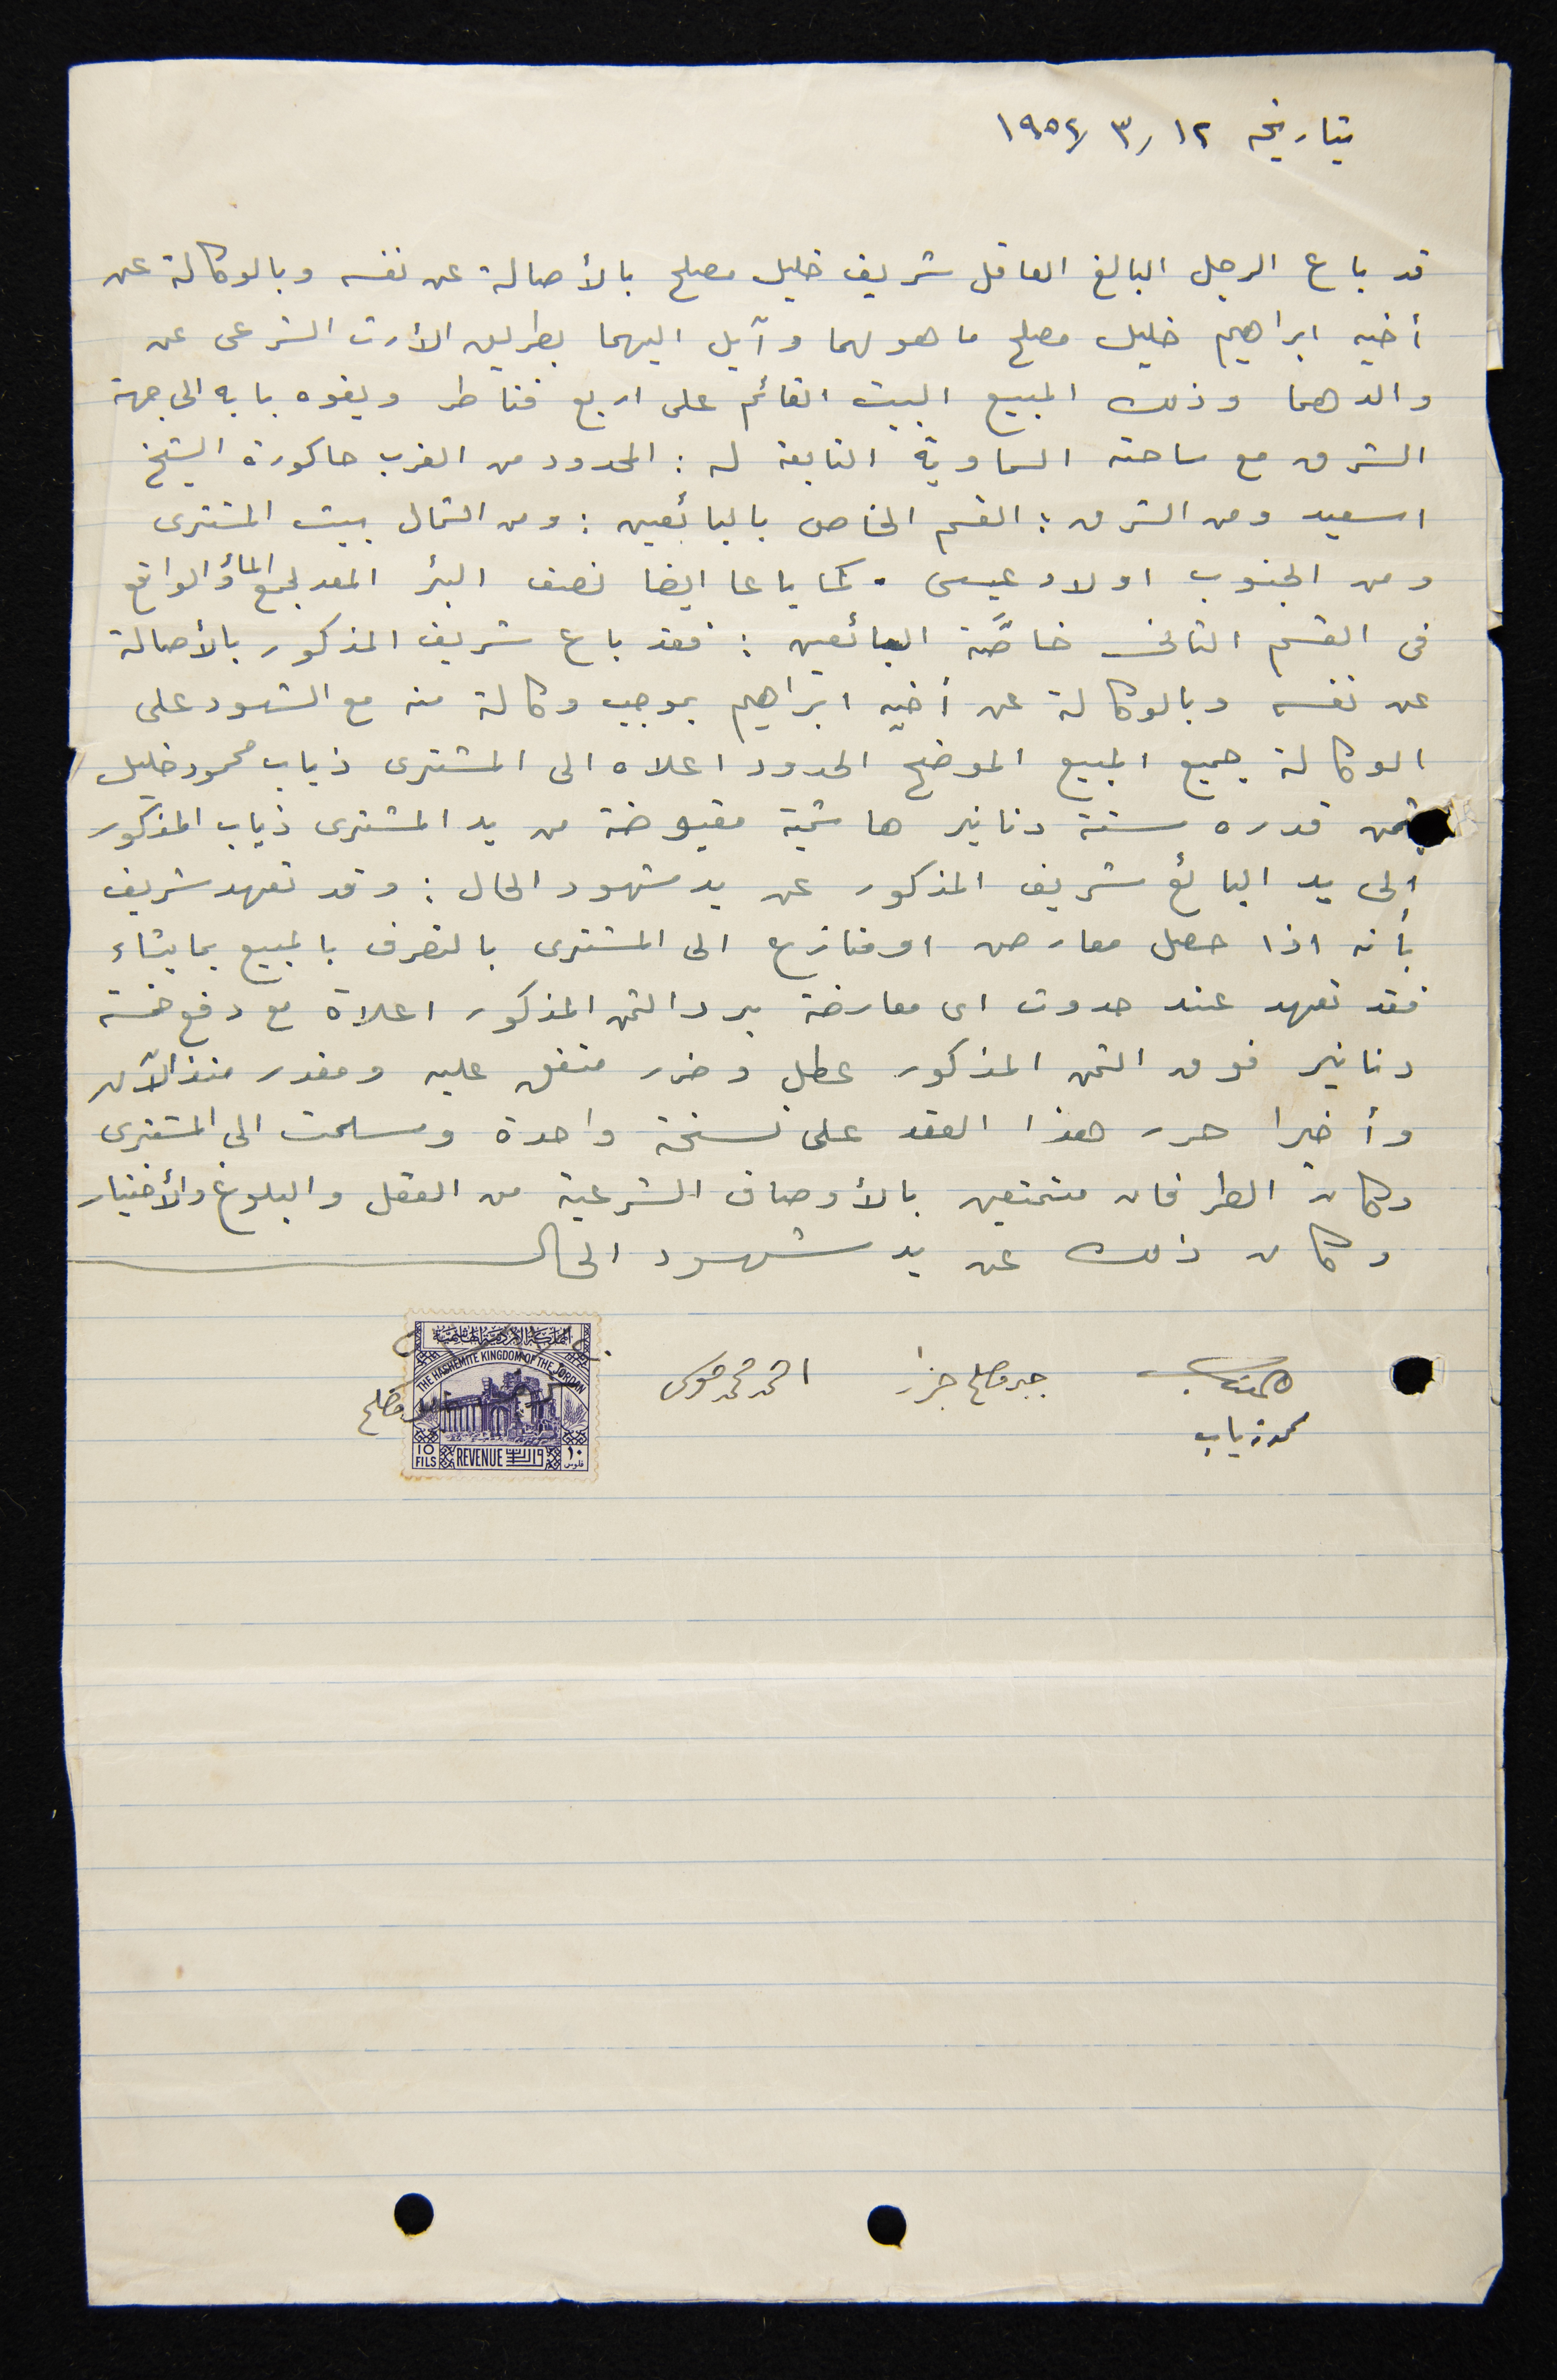 بتاريخه ١٢ / ٣ / ١٩٥٤
قد باع الرجل البالغ العاقل شريف خليل مصلح بالأصالة عن نفسه وبالوكالة عن
أخيه ابراهيم خليل مصلح ما هو لهما وآيل اليهما بطريق الأرث الشرعى عن
والدهما وذلك المبيع البيت القائم على اربع قناطر ويفوه بابه الى جهة
الشرق مع ساحته السماوية التابعة له : المحدود من الغرب حاكورة الشيخ
اسعيد ومن الشرق : القسم الخاص بالبائعين : ومن الشمال بيت المشترى
ومن الجنوب اولاد عيسى . كما باعا ايضا نصف البئر المعد لجمع الماؤ والواقع
فى القسم الثانى خاصَّة البائعين : فقد باع شريف المذكور بالأصالة
عن نفسه وبالوكالة عن أخيه ابراهيم بموجب وكالة منه مع الشهود على
الوكالة جميع المبيع الموضح الحدود اعلاه الى المشترى ذياب محمود خليل
بثمن قدره ستة دنانير هاشمية مقبوضة من يد المشترى ذياب المذكور
الى يد البائع شريف المذكور عن يد شهود الحال : وقد تعهد شريف
بأنه اذا حصل معارض او منازع الى المشترى بالتصرف بالمبيع بما يشاء
فقد تعهد عند حدوث اى معارضة برد الثمن المذكور اعلاه مع دفع خمسة
دنانير فوق الثمن المذكور عطل وضرر متفق عليه ومقدر منذ الآن
وأخيرا حرر هذا العقد على نسخة واحدة وسلمت الى المشترى
وكان الطرفان متمتعين بالأوصاف الشرعية من العقل والبلوغ والأختيار
وكان ذلك عن يد شهود الحال
احمد محمد موسى
جبر مصلح جزار
محمد ذياب
مصلح
المملكة الاردنية الهاشمية
THE HASHEMITE KINGDOM OF THE JORDAN
10 FILS REVENUE واردات ١٠ فلوس